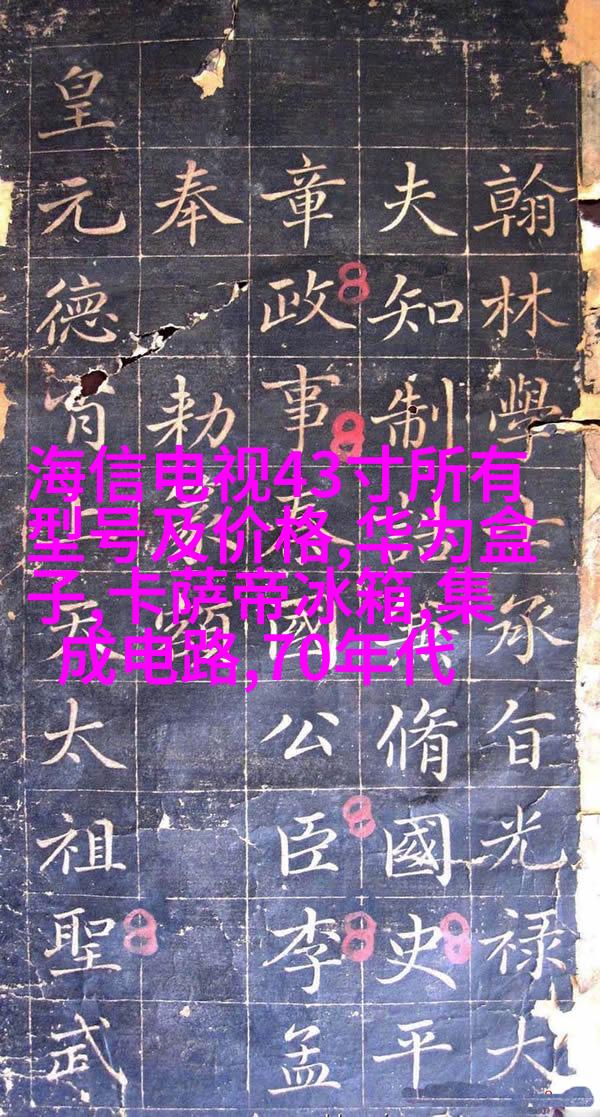 翰林學士承旨光禄大
夫知制誥兼脩國史平
章政事國公臣李孟
奉勅額
皇元德天太祖聖武
海信电视43寸所有
型号及价格,华为盒
子,卡萨帝冰箱,集
成电路,70年代